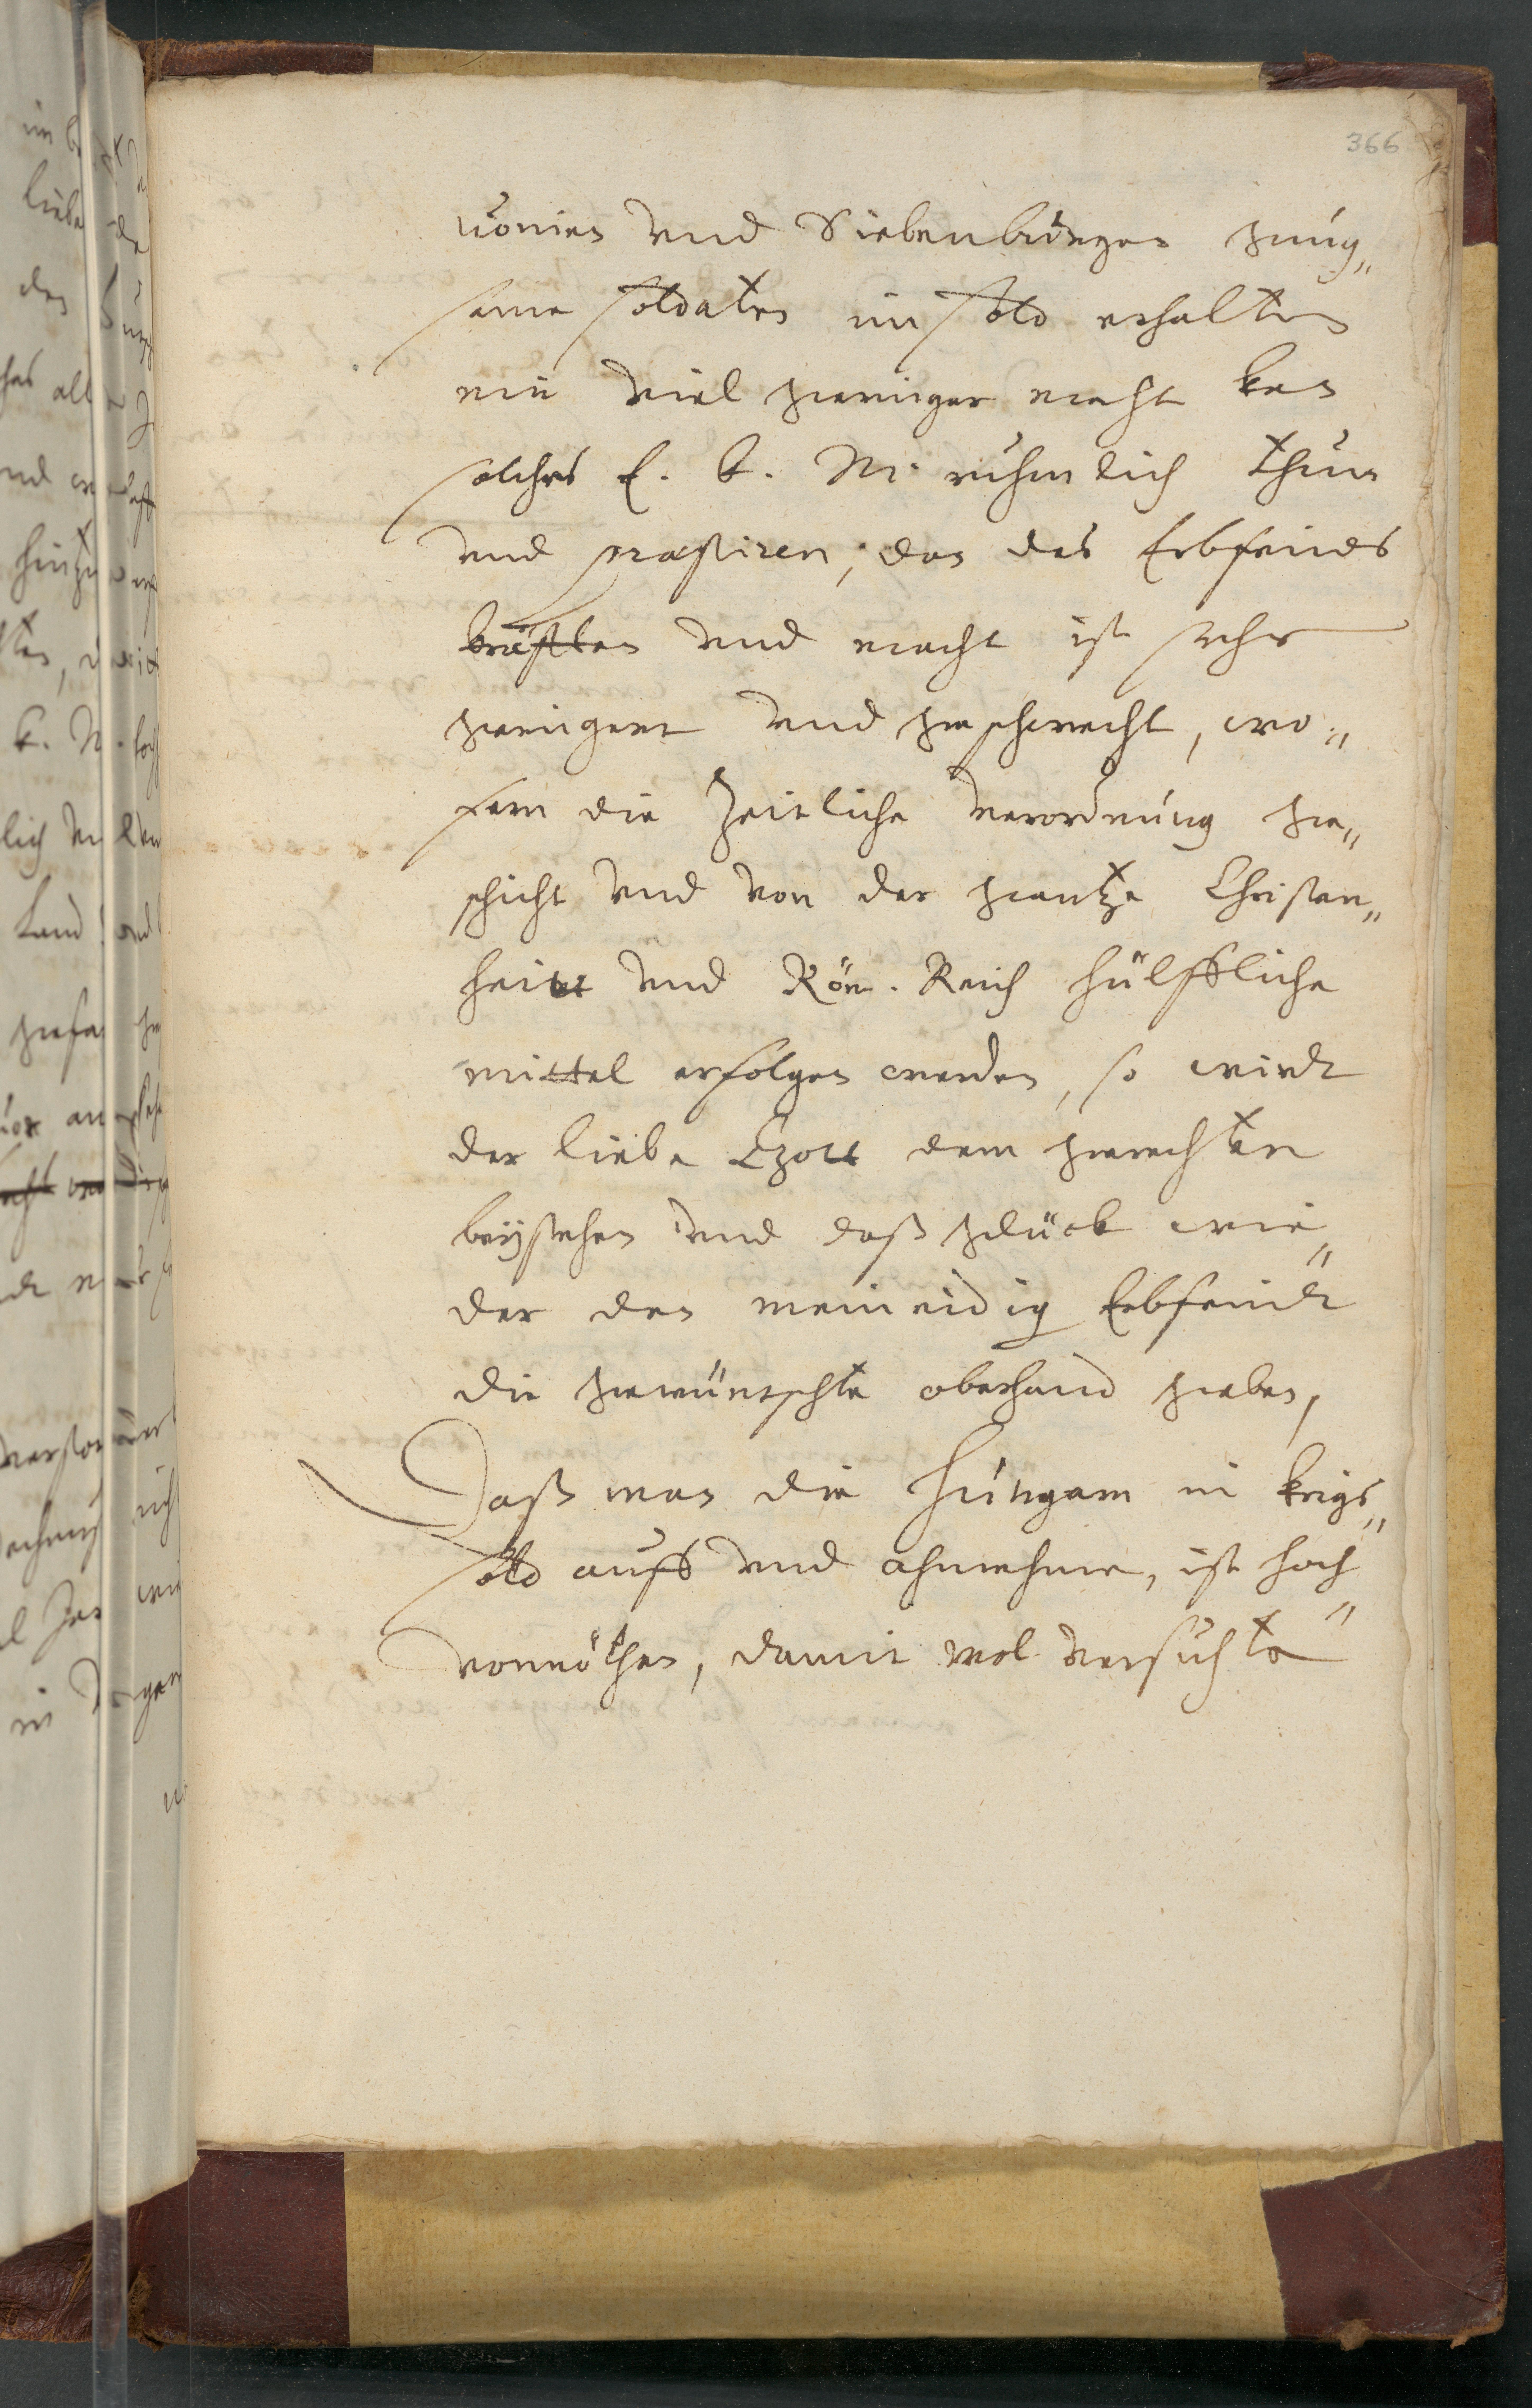 366
uonien vnd Siebenbürgen gnúg„
same soldaten im sold erhalten
ein viel geringer macht kan
solches E. k. M. rühmlich thun
vnd præstiren, dan des Erbfeinds
kräfften vnd macht ist sehr
geringert vnd geschwecht, wo„
fern die Zeitliche verordnúng ge„
schicht vnd von der gantze Christen„
heitt vnd Röm. Reich hülffliche
mittel erfolgen werden, so wirdt
der liebe Gott dem gerechten
beÿstehen vnd daß glück wie„
der den meineidig Erbfeindt
die gewüntschte oberhand geben,
Daß man die Húngarn in krigs„
sold auff vnd ahnehme, ist hoch„
vonnöthen, damit wol versuchte